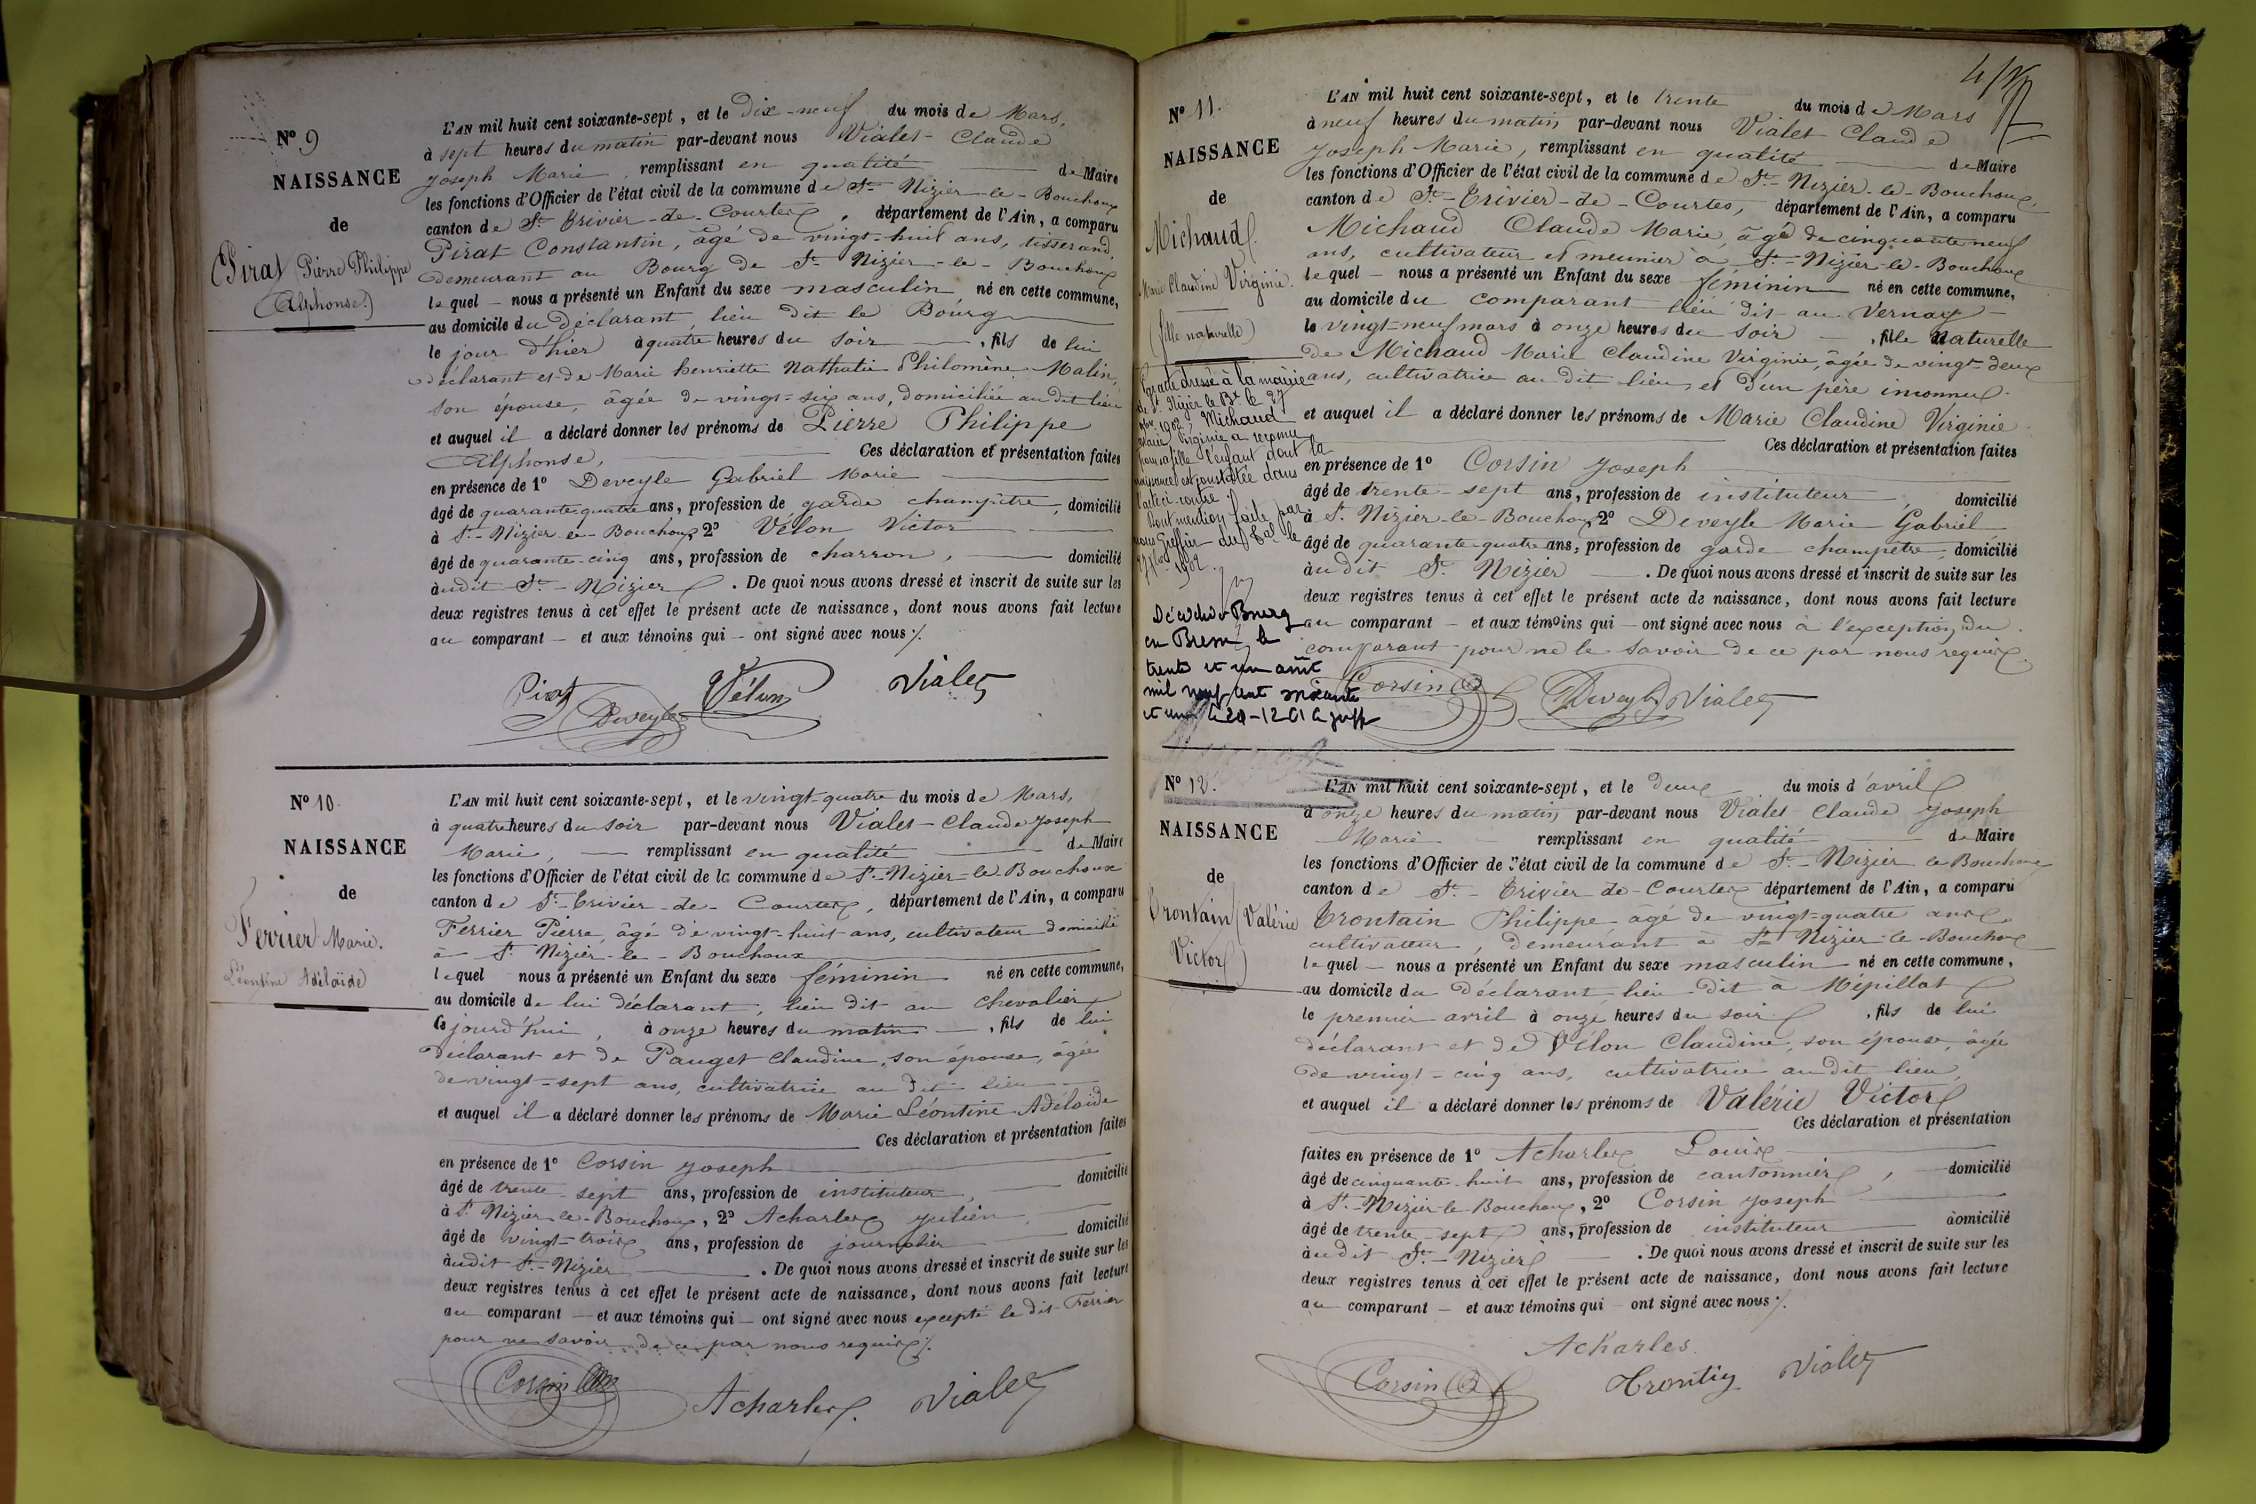 Nº 9
NAISSANCE
de
Pirat Pierre Philippe
(Alphonse)
L'AN mil huit cent soixante-sept, et le dix-neuf du mois de Mars,
à sept heures du matin par-devant nous Vialet Claude
Joseph Marie, remplissant en qualité de Maire
les fonctions d'Officier de l'état civil de la commune de St-Nizier-le-Bouchoux
canton de St-Trivier-de-Courtes, département de l'Ain, a comparu
Pirat Constantin, âgé de vingt-huit ans, tisserand,
demeurant au Bourg de St-Nizier-le-Bouchoux
lequel nous a présenté un Enfant du sexe masculin né en cette commune,
au domicile du déclarant, lieu dit le Bourg
le jour d'hier à quatre heures du soir, fils de lui
déclarant et de Marie henriette Nathalie Philomène Matin,
son épouse, âgée de vingt-six ans, domiciliée au dit lieu
et auquel il a déclaré donner les prénoms de Pierre Philippe
Alphonse, Ces déclaration et présentation faites
en présence de 1º Deveyle Gabriel Marie
âgé de quarante quatre ans, profession de garde champêtre, domicilié
à St-Nizier-le-Bouchoux, 2º Vélon Victor
âgé de quarante-cinq ans, profession de charron, domicilié
audit St-Nizier. De quoi nous avons dressé et inscrit de suite sur les
deux registres tenus à cet effet le présent acte de naissance, dont nous avons fait lecture
au comparant et aux témoins qui ont signé avec nous ./.
Pirat Vélon Vialet
Deveyle
Nº 10.
NAISSANCE
de
Ferrier Marie.
Léontine Adélaïde
L'AN mil huit cent soixante-sept, et le vingt-quatre du mois de Mars,
à quatre heures du soir par-devant nous Vialet Claude Joseph
Marie, remplissant en qualité de Maire
les fonctions d'Officier de l'état civil de la commune de St-Nizier-le-Bouchoux
canton de St-Trivier-de-Courtes, département de l'Ain, a comparu
Ferrier Pierre, âgé de vingt-huit ans, cultivateur domicilié
à St Nizier-le-Bouchoux
lequel nous a présenté un Enfant du sexe féminin né en cette commune,
au domicile de lui déclarant, lieu dit au chevalier
Ce jourd'hui, à onze heures du matin, fils de lui
déclarant et de Pauget Claudine, son épouse, âgée
de vingt-sept ans, cultivatrice au dit lieu
et auquel il a déclaré donner les prénoms de Marie Léontine Adélaïde
Ces déclaration et présentation faites
en présence de 1º Corsin Joseph
âgé de trente-sept ans, profession de instituteur, domicilié
à St Nizier-le-Bouchoux, 2º Acharles Julien
âgé de vingt-trois ans, profession de journalier domicilié
audit St-Nizier. De quoi nous avons dressé et inscrit de suite sur les
deux registres tenus à cet effet le présent acte de naissance, dont nous avons fait lecture
au comparant et aux témoins qui ont signé avec nous excepté le dit Ferrier
pour ne savoir de ce par nous requis ./.
Corsin Acharles Vialet
Nº 11.
NAISSANCE
de
Michaud
Marie Claudine Virginie
(fille naturelle)
Par acte dressé à la mairie
de St Nizier le Bx le 27
1902, Michaud
Marie Virginie a reconnu
pour sa fille l'enfant dont la
naissance est constatée dans
l'acte ci-contre.
Dont mention faite par
nous Greffier du Tal le
1902.
Décédée à Bourg
en Bresse le
trente et un août
mil neuf cent soixante
et un le 20-12-61 le
L'AN mil huit cent soixante-sept, et le trente du mois de Mars
à neuf heures du matin par-devant nous Vialet Claude
Joseph Marie, remplissant en qualité de Maire
les fonctions d'Officier de l'état civil de la commune de St-Nizier-le-Bouchoux,
canton de St-Trivier-de-Courtes, département de l'Ain, a comparu
Michaud Claude Marie, âgé de cinquante neuf
ans, cultivateur et meunier à St-Nizier-le-Bouchoux
lequel nous a présenté un Enfant du sexe féminin né en cette commune,
au domicile du comparant lieu dit au Vernay
le vingt-neuf mars à onze heures du soir, fille naturelle
de Michaud Marie Claudine Virginie, âgée de vingt-deux
ans, cultivatrice au dit lieu, et d'un père inconnu
et auquel il a déclaré donner les prénoms de Marie Claudine Virginie
Ces déclaration et présentation faites
en présence de 1º Corsin Joseph
âgé de trente-sept ans, profession de instituteur, domicilié
à St. Nizier-le-Bouchoux 2º Deveyle Marie Gabriel
âgé de quarante-quatre ans, profession de garde champêtre, domicilié
audit St Nizier. De quoi nous avons dressé et inscrit de suite sur les
deux registres tenus à cet effet le présent acte de naissance, dont nous avons fait lecture
au comparant et aux témoins qui ont signé avec nous à l'exception du
comparant pour ne le savoir de ce par nous requis.
Corsin Deveyle Vialet
Nº 12.
NAISSANCE
de
Trontain (Valérie
Victor)
L'AN mil huit cent soixante-sept, et le deux du mois d'avril
à onze heures du matin par-devant nous Vialet Claude Joseph
Marie remplissant en qualité de Maire
les fonctions d'Officier de l'état civil de la commune de St-Nizier le Bouchoux
canton de St-Trivier-de-Courtes département de l'Ain, a comparu
Trontain Philippe âgé de vingt-quatre ans
cultivateur, demeurant à St Nizier-le-Bouchoux
lequel nous a présenté un Enfant du sexe masculin né en cette commune,
au domicile du déclarant lieu dit à Mépillat
le premier avril à onze heures du soir, fils de lui
déclarant et de Vélon Claudine, son épouse, âgée
de vingt-cinq ans, cultivatrice au dit lieu,
et auquel il a déclaré donner les prénoms de Valérie Victor
Ces déclaration et présentation
faites en présence de 1º Acharles Louis
âgé de cinquante-huit ans, profession de cantonnier, domicilié
à St-Nizier-le-Bouchoux, 2º Corsin Joseph
âgé de trente-sept ans, profession de instituteur domicilié
audit St-Nizier. De quoi nous avons dressé et inscrit de suite sur les
deux registres tenus à cet effet le présent acte de naissance, dont nous avons fait lecture
au comparant et aux témoins qui ont signé avec nous ./.
Acharles
Corsin Trontin Vialet